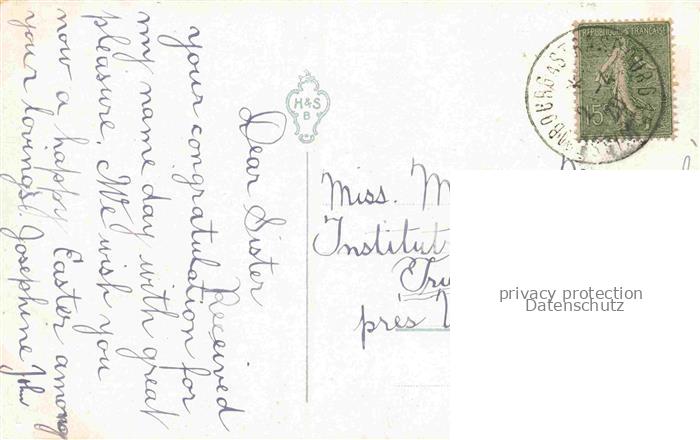 Dear Sister
Received
your congratulation for
my name day with great
pleasure. We wish you
now a happy Easter among
your lovings. Josephine John
H&S
B
REPUBLIQUE FRANÇAISE
15
Miss. M
Institut
près
privacy protection
Datenschutz